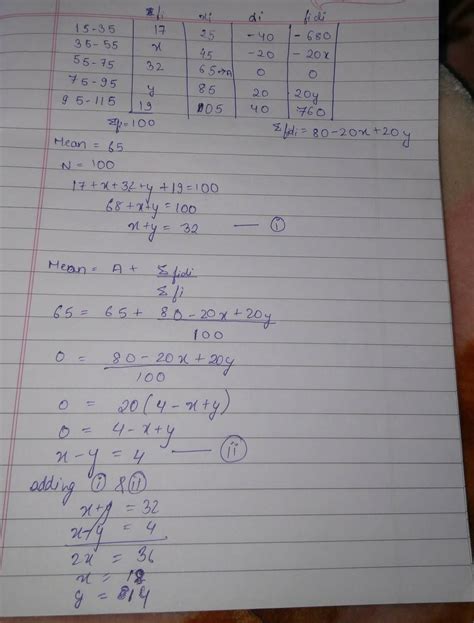 Σfi xi di fidi
15-35 17 25 -40 -680
35-55 x 45 -20 -20x
55-75 32 65→A 0 0
75-95 y 85 20 20y
95-115 19 105 40 760
Σf=100 Σfidi = 80-20x+20y
Mean = 65
N = 100
17+x+32+y+19=100
68+x+y=100
x+y = 32 — (i)
Mean = A + Σfidi
Σfi
65 = 65 + 80-20x+20y
100
0 = 80-20x+20y
100
0 = 20(4-x+y)
0 = 4-x+y
x-y = 4 — (ii)
adding (i) & (ii)
x+y = 32
x-y = 4
2x = 36
x = 18
y = 14